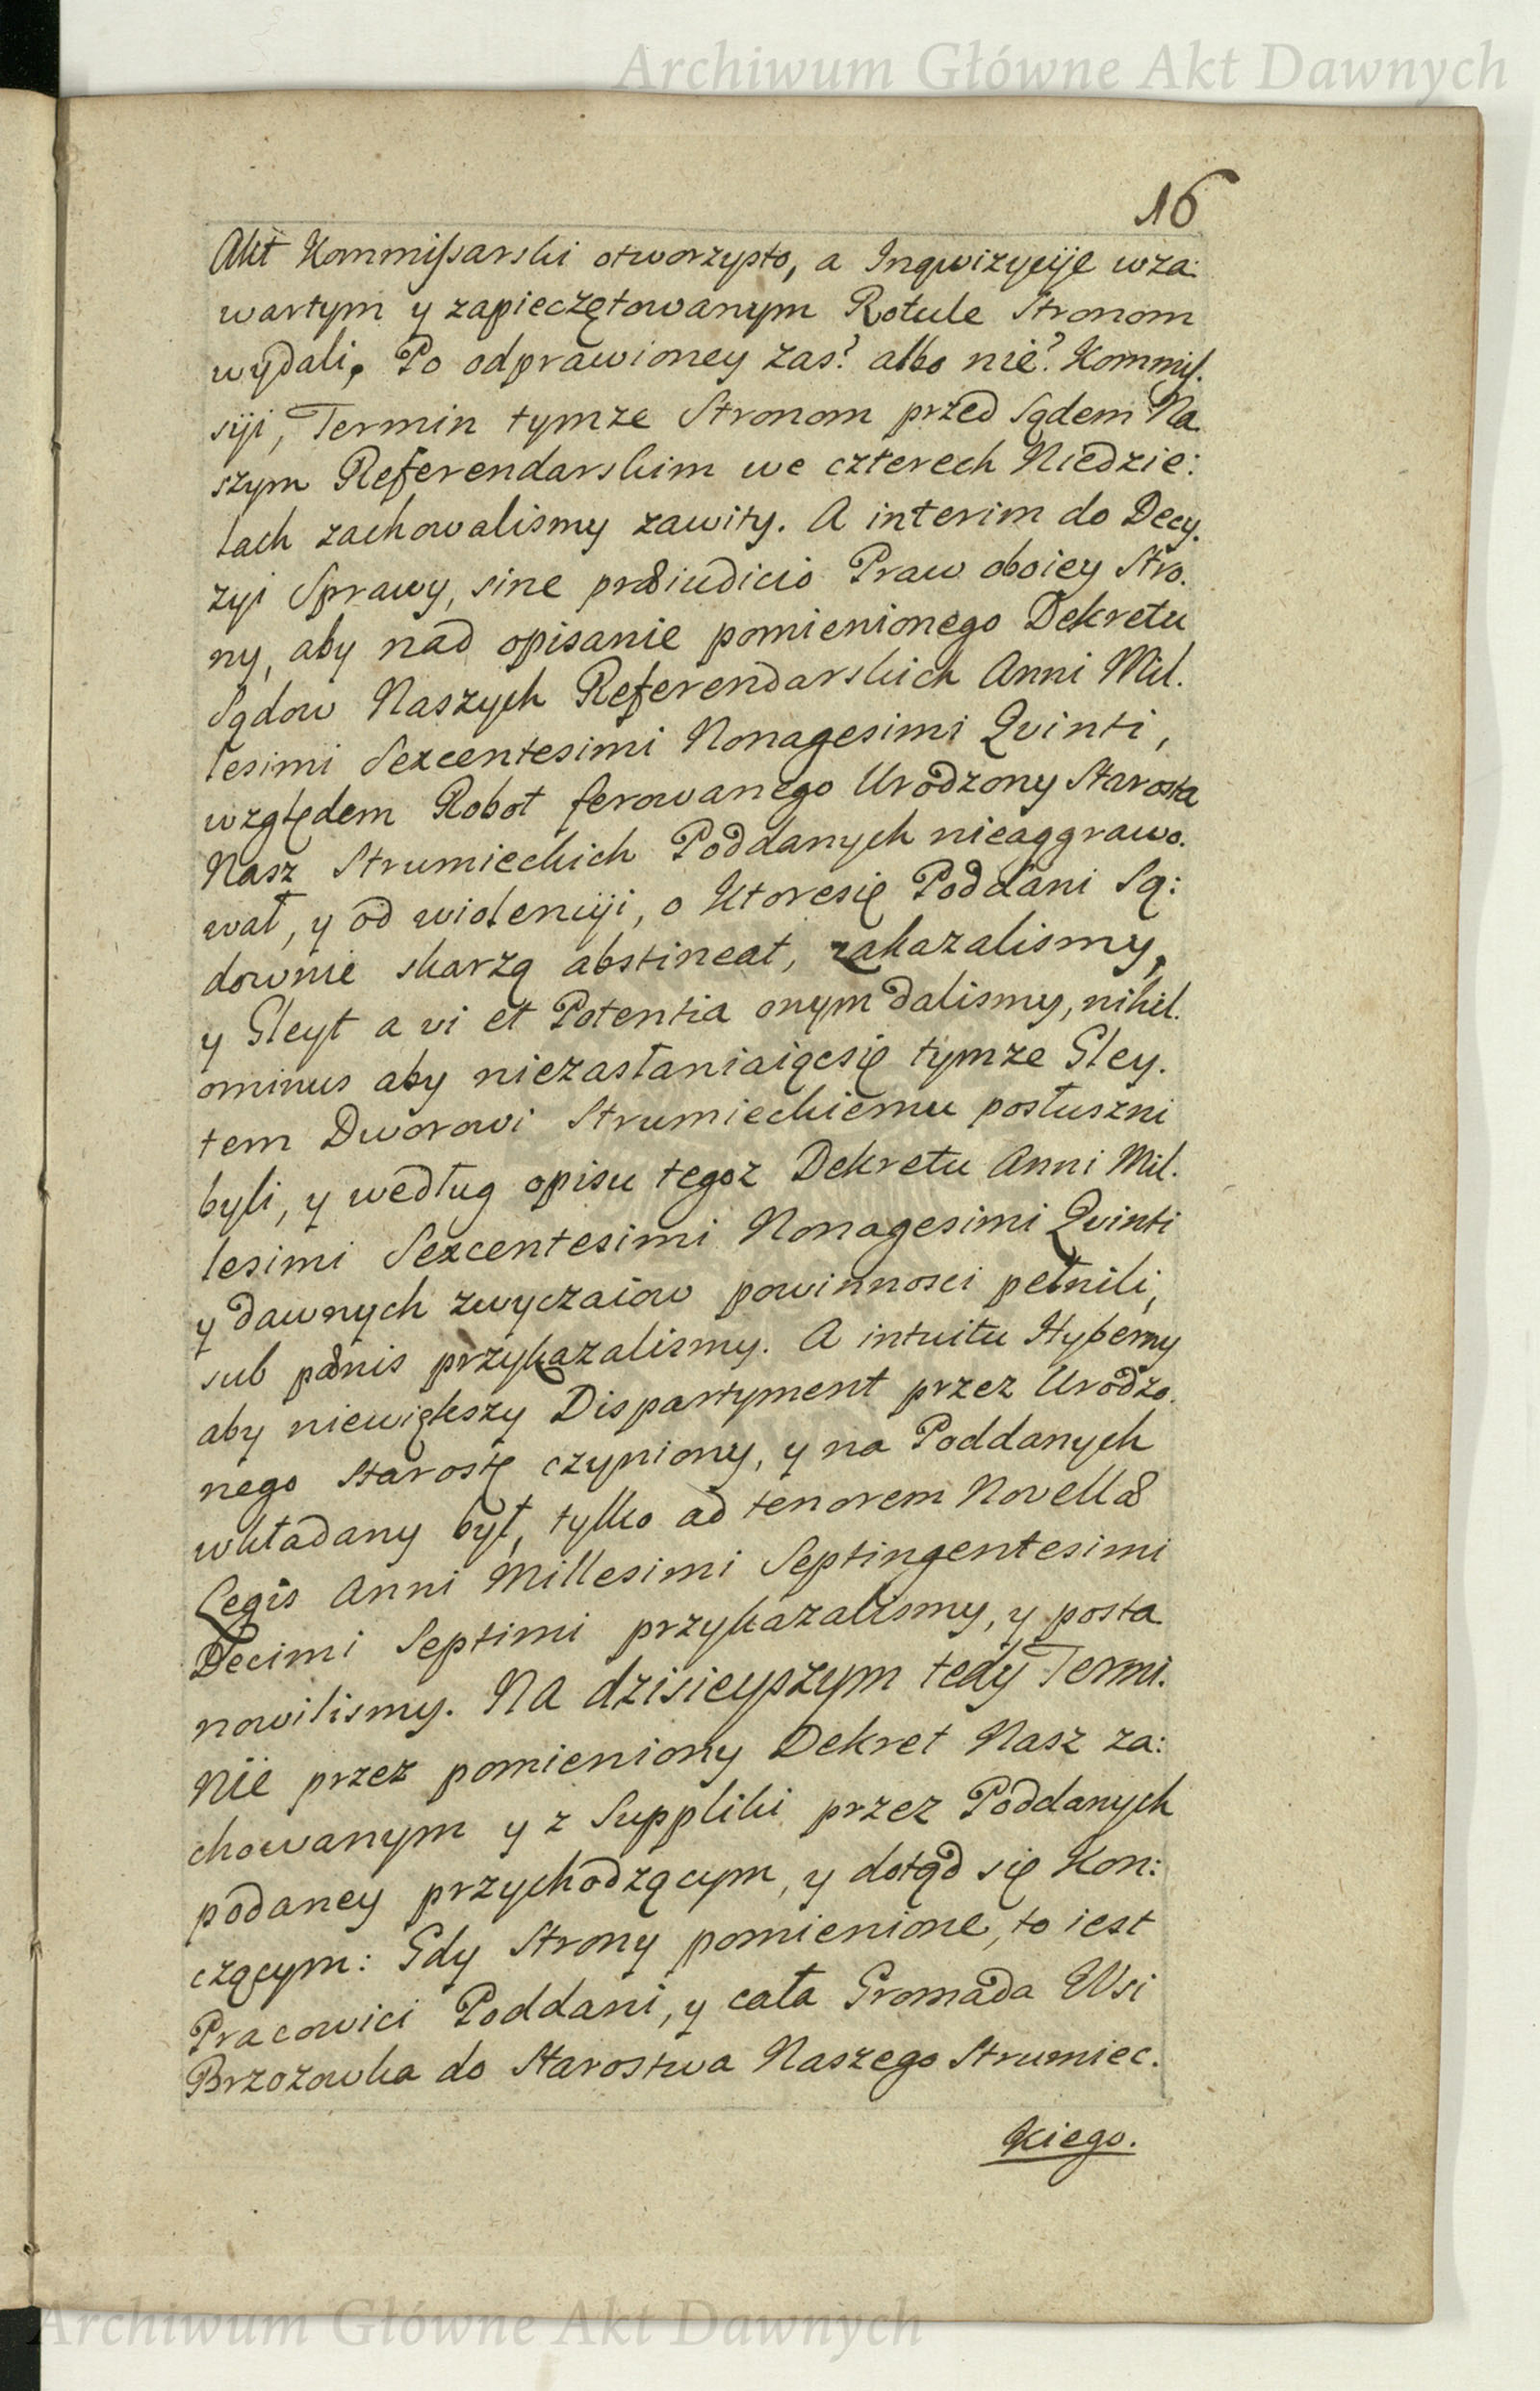 Archiwum Główne Akt Dawnych
16
Akt Kommissarski otworzysto, a Inqwizycÿje wza:
wartym y zapieczętowanym Rotule Stronom
wydali. Po odprawioney zas? albo nie? Kommis.
sÿji, Termin tymze Stronom przed Sądem Na
szym Referendarskim we czterech Niedzie:
lach zachowalismy zawity. A interim do Decy.
zyi Sprawy, sine præiudicio Praw oboiey Stro.
ny, aby nad opisanie pomienionego Dekretu
Sądow Naszych Referendarskich Anni Mil.
lesimi Sexcentesimi Nonagesimi Qvinti,
względem Robot ferowanego Urodzony Starosta
Nasz Strumieckich Poddanych nieaggrawo.
wał, y od wiolencÿi, o Ktoresię Poddani Są:
downie skarzą abstineat, zakazalismy,
y Gleyt a vi et Potentia onym dalismy, nihil.
ominus aby niezasłaniaiącsię tymze Gley.
tem Dworowi Strumieckiemu posłuszni
byli, y według opisu tegoz Dekretu Anni Mil.
lesimi Sexcentesimi Nonagesimi Qvinti
y dawnych zwyczaiow powinnosci pełnili,
sub pænis przykazalismy. A intuitu Hyberny
aby niewiększy Dispartyment przez Urodzo.
nego Starostę czyniony, y na Poddanych
wkładany był, tylko ad tenorem Novellæ
Legis Anni Millesimi Septingentesimi
Decimi Septimi przykazalismy, y posta
nowilismy. Na dzisieyszym tedy Termi.
nie przez pomieniony Dekret Nasz za:
chowanym y z Suppliki przez Poddanych
podaney przychodzącym, y dotąd się Kon:
czącym: Gdy Strony pomienione, to iest
Pracowici Poddani, y cała Gromada Wsi
Brzozowka do Starostwa Naszego Strumiec.
kiego.
Archiwum Główne Akt Dawnych